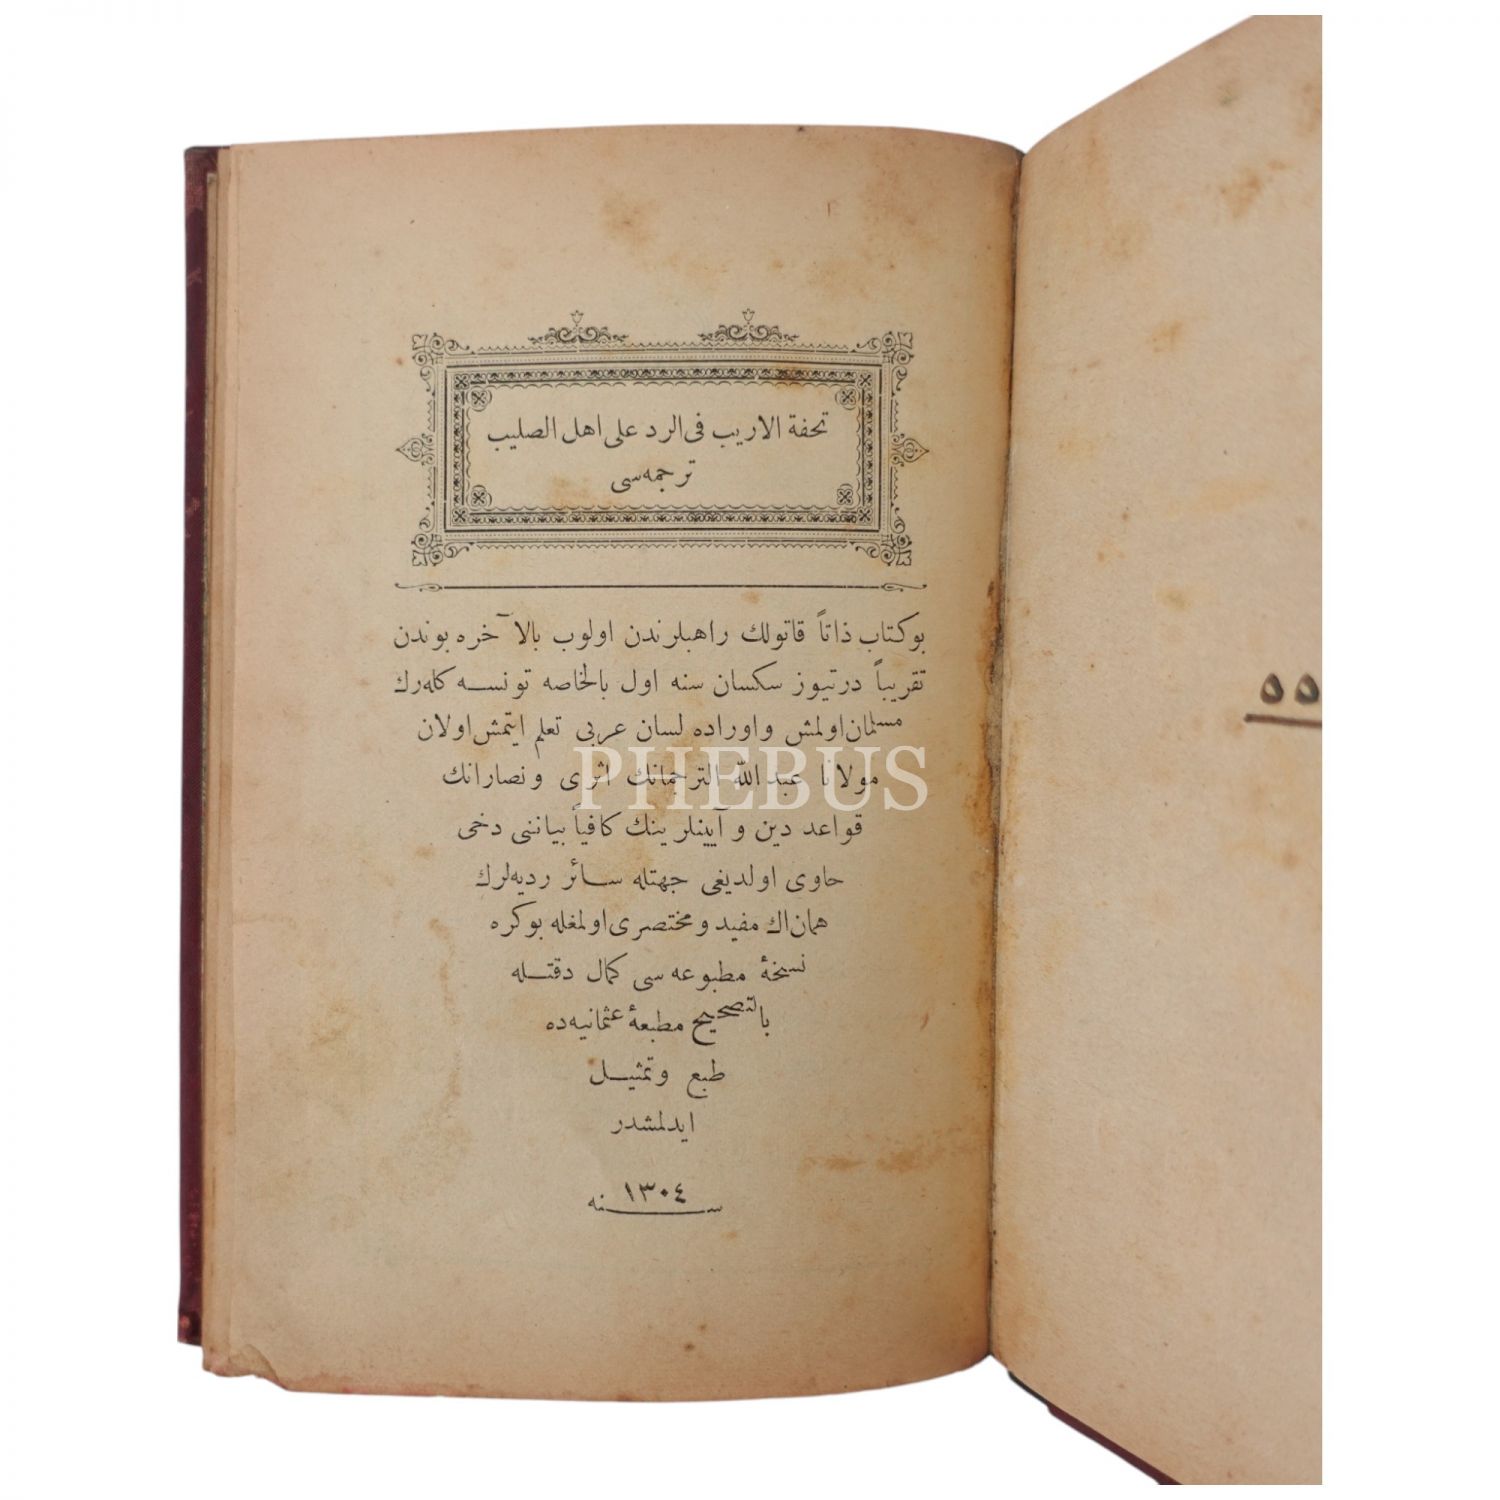 تحفة الاريب فى الرد على اهل الصليب
ترجمه‌سى
بو كتاب ذاتاً قاتولك راهبلرندن اولوب بالآخره بوندن
تقريباً درتيوز سكسان سنه اول بالخاصه تونسه كله‌رك
مسلمان اولمش واوراده لسان عربى تعلم ايتمش اولان
مولانا عبد الله الترجمانك اثرى ونصارانك
قواعد دين و آيينلرينك كافياً بياننى دخى
حاوى اولديغى جهتله سائر رديه‌لرك
همان اك مفيد ومختصرى اولمغله بوكره
نسخهٔ مطبوعه سى كمال دقتله
بالتصحيح مطبعهٔ عثمانيه‌ده
طبع وتمثيل
ايدلمشدر
سنه ١٣٠٤
٥٥
PHEBUS